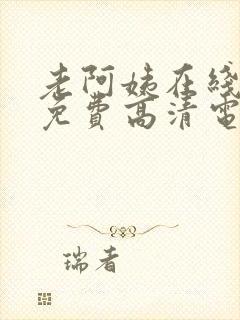 老阿姨在线
免费高清电
瑞者